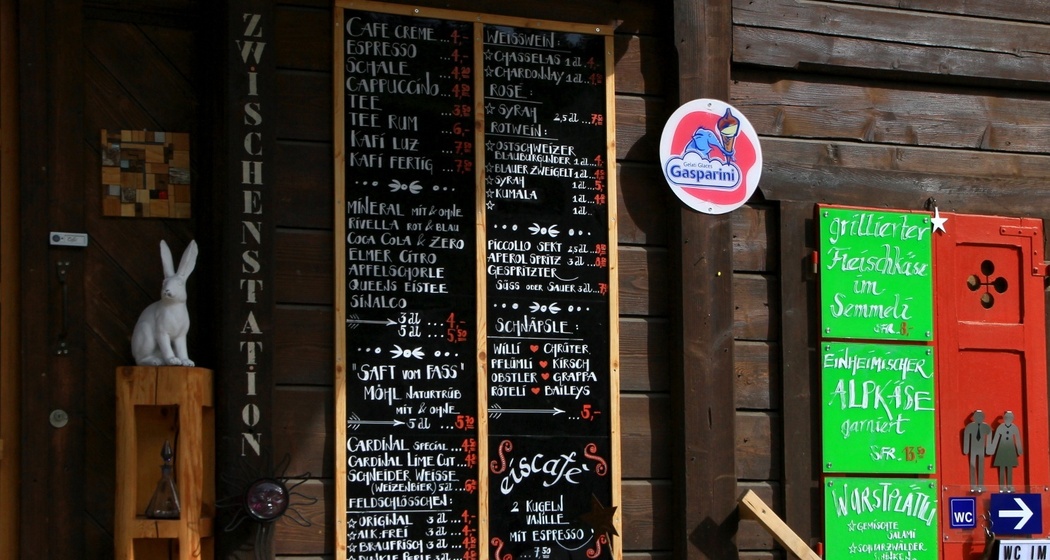 ZWISCHENSTATION
CAFE CREME ...4,-
ESPRESSO ...4,-
SCHALE
CAPPUCCINO
TEE
TEE RUM ...6,-
KAFI LUZ
KAFI FERTIG
MINERAL MIT & OHNE
RIVELLA ROT & BLAU
COCA COLA & ZERO
ELMER CITRO
APFELSCHORLE
QUEENS EISTEE
SINALCO
3 dl ...4,-
5 dl ...5,50
"SAFT VOM FASS"
MÖHL NATURTRÜB
MIT & OHNE
5 dl
CARDINAL SPECIAL
CARDINAL LIME CUT
SCHNEIDER WEISSE
(WEIZENBIER) 5 dl
FELDSCHLÖSSCHEN:
☆ ORIGINAL 3 dl ...4,-
☆ ALK-FREI 3 dl
☆ BRAUFRISCH 3 dl
☆ DUNKLE PERLE
WEISSWEIN:
☆ CHASSELAS 1 dl 4,-
☆ CHARDONNAY 1 dl
ROSE:
☆ SYRAH
2,5 dl
ROTWEIN:
☆ OSTSCHWEIZER
BLAUBURGUNDER 1 dl
☆ BLAUER ZWEIGELT 1 dl
☆ SYRAH 1 dl ...5,-
☆ KUMALA 1 dl
☆ 1 dl
PICCOLLO SEKT 2,5 dl
APEROL SPRITZ 3 dl
GESPRITZTER
SÜSS ODER SAUER 3 dl
SCHNÄPSLE:
WILLI ♥ CHRÜTER
PFLÜMLI ♥ KIRSCH
OBSTLER ♥ GRAPPA
RÖTELI ♥ BAILEYS
...5,-
eiscafe
2 KUGELN
VANILLE
MIT ESPRESSO
... 7,50
Gelati Glaces
Gasparini
grillierter
Fleischkäse
im
Semmeli
SFR. 8,-
EINHEIMISCHER
ALPKÄSE
garniert
SFR.
WURSTPLÄTTLI
☆ GEMISCHTE
SALAMI
☆ SCHWARZWÄLDER
SCHINKEN
WC
WC IM